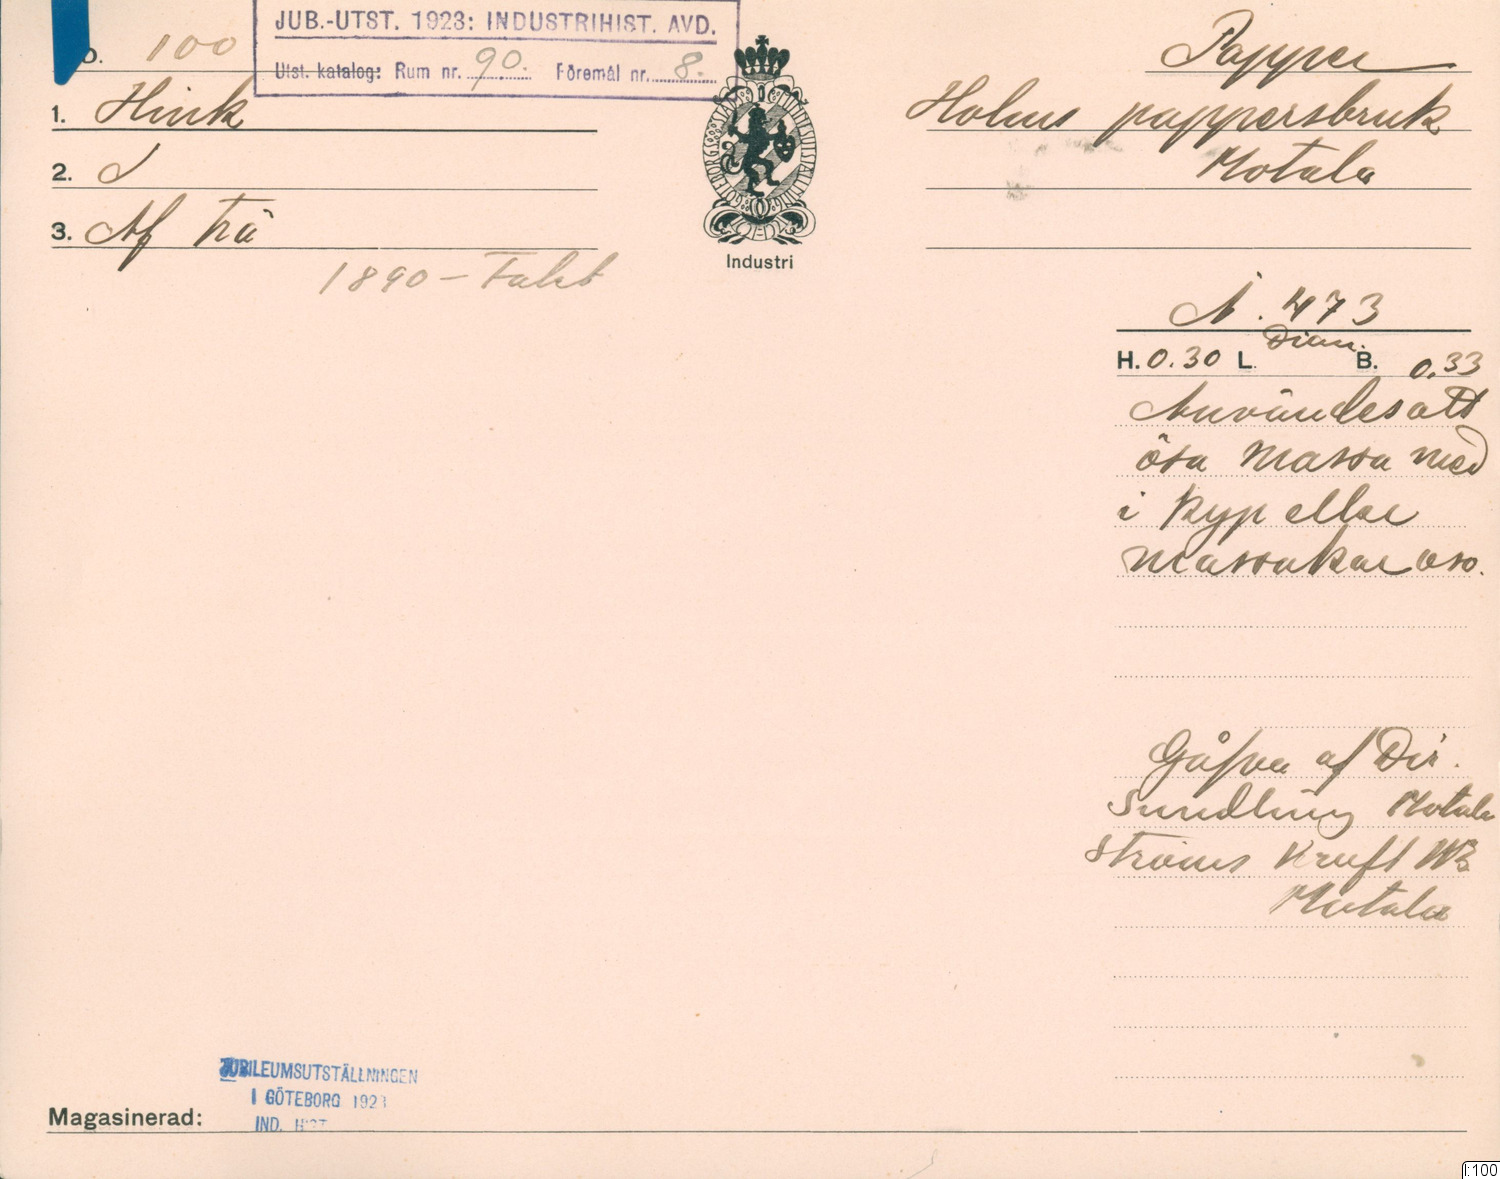 JUB.-UTST. 1923: INDUSTRIHIST. AVD.
Utst. katalog: Rum nr. 90. Föremål nr. 8.
D. 100
1. Hink
2. 1
3. Af trä
1890 – Talet
Industri
Papper
Holms pappersbruk
Motala
N. 473
Diam.
H. 0.30 L. B. 0.33
Användes att
ösa massa med
i kyp eller
massakar oso.
Gåfva af Dir.
Sundling Motala
Ströms Kraft
Motala
JUBILEUMSUTSTÄLLNINGEN
I GÖTEBORG 1923
IND. HIST
Magasinerad:
I:100